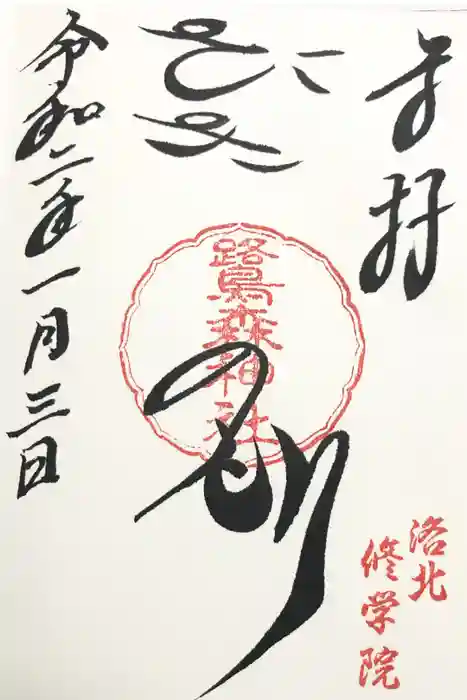 奉拝
鷺森神社
令和二年一月三日
洛北
修学院